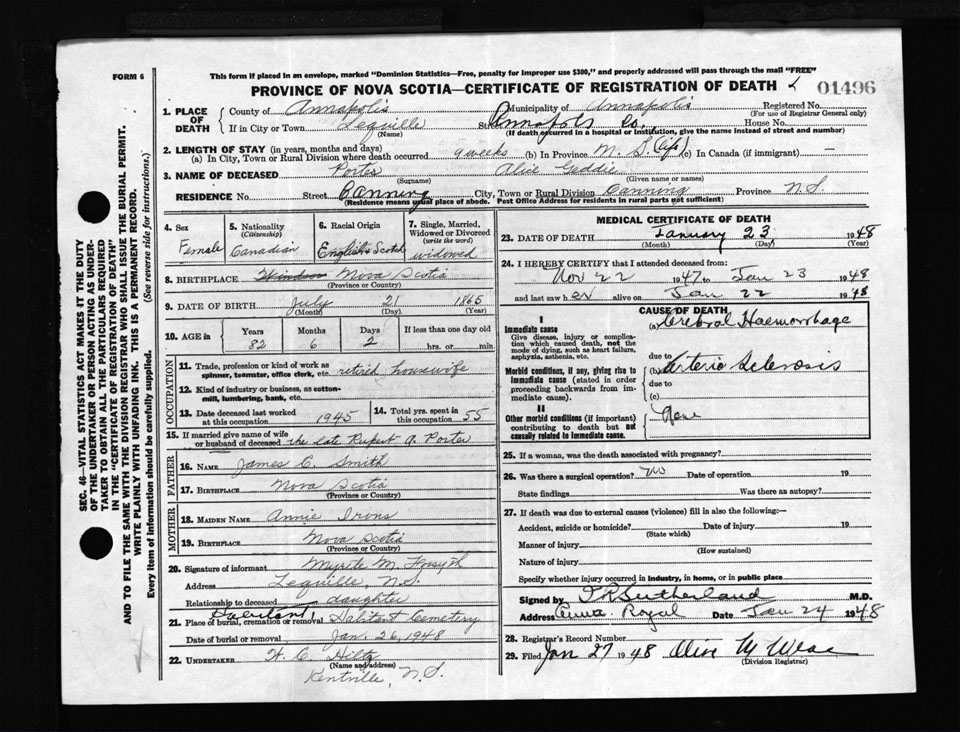 FORM 6
This form if placed in an envelope, marked "Dominion Statistics—Free, penalty for improper use $300," and properly addressed will pass through the mail "FREE"
PROVINCE OF NOVA SCOTIA—CERTIFICATE OF REGISTRATION OF DEATH 01496
1. PLACE OF DEATH County of Annapolis Municipality of Annapolis Registered No.
(For use of Registrar General only)
If in City or Town Lequille Street Annapolis Co. House No.
(Name) (If death occurred in a hospital or institution, give the name instead of street and number)
2. LENGTH OF STAY (in years, months and days)
(a) In City, Town or Rural Division where death occurred 9 weeks (b) In Province N. S. (life) (c) In Canada (if immigrant) —
3. NAME OF DECEASED Porter Alice Geddie
(Surname) (Given name or names)
RESIDENCE No. Street Canning City, Town or Rural Division Canning Province N.S.
(Residence means usual place of abode. Post Office Address for residents in rural parts not sufficient)
4. Sex Female
5. Nationality (Citizenship) Canadian
6. Racial Origin English Scotch
7. Single, Married, Widowed or Divorced (write the word) widowed
8. BIRTHPLACE Windsor Nova Scotia
(Province or Country)
9. DATE OF BIRTH July 21 1865
(Month) (Day) (Year)
10. AGE in Years Months Days If less than one day old
82 6 2 hrs. or min.
OCCUPATION
11. Trade, profession or kind of work as spinner, teamster, office clerk, etc. retired housewife
12. Kind of industry or business, as cotton-mill, lumbering, bank, etc.
13. Date deceased last worked at this occupation 1945
14. Total yrs. spent in this occupation 55
15. If married give name of wife or husband of deceased the late Rupert A. Porter
FATHER
16. NAME James C. Smith
17. BIRTHPLACE Nova Scotia
(Province or Country)
MOTHER
18. MAIDEN NAME Annie Irons
19. BIRTHPLACE Nova Scotia
(Province or Country)
20. Signature of informant Myrtle M. Forsyth
Address Lequille, N.S.
Relationship to deceased daughter
Habitant
21. Place of burial, cremation or removal Habitant Cemetery
Date of burial or removal Jan. 26, 1948
22. UNDERTAKER W. C. Hiltz
(Name and address)
Kentville, N. S.
MEDICAL CERTIFICATE OF DEATH
23. DATE OF DEATH January 23 1948
(Month) (Day) (Year)
24. I HEREBY CERTIFY that I attended deceased from:
Nov 22 1947 to Jan 23 1948
and last saw her alive on Jan 22 1948
CAUSE OF DEATH
I
Immediate cause (a) Cerebral Haemorrhage
Give disease, injury or complication which caused death, not the mode of dying, such as heart failure, asphyxia, asthenia, etc.
due to
Morbid conditions, if any, giving rise to immediate cause (stated in order proceeding backwards from immediate cause). (b) Arterio Sclerosis
due to
(c)
II
Other morbid conditions (if important) contributing to death but not causally related to immediate cause.
25. If a woman, was the death associated with pregnancy?
26. Was there a surgical operation? no Date of operation 19
State findings Was there an autopsy?
27. If death was due to external causes (violence) fill in also the following:—
Accident, suicide or homicide? Date of injury 19
(State which)
Manner of injury
(How sustained)
Nature of injury
Specify whether injury occurred in industry, in home, or in public place
Signed by Sutherland M.D.
Address Royal Date Jan 24 1948
28. Registrar's Record Number
29. Filed Jan 27 1948 Olive M
(Division Registrar)
SEC. 46—VITAL STATISTICS ACT MAKES IT THE DUTY
OF THE UNDERTAKER OR PERSON ACTING AS UNDER-
TAKER TO OBTAIN ALL THE PARTICULARS REQUIRED
IN THE "CERTIFICATE OF REGISTRATION OF DEATH"
AND TO FILE THE SAME WITH THE DIVISION REGISTRAR WHO SHALL ISSUE THE BURIAL PERMIT.
WRITE PLAINLY WITH UNFADING INK. THIS IS A PERMANENT RECORD.
Every item of information should be carefully supplied. (See reverse side for instructions.)